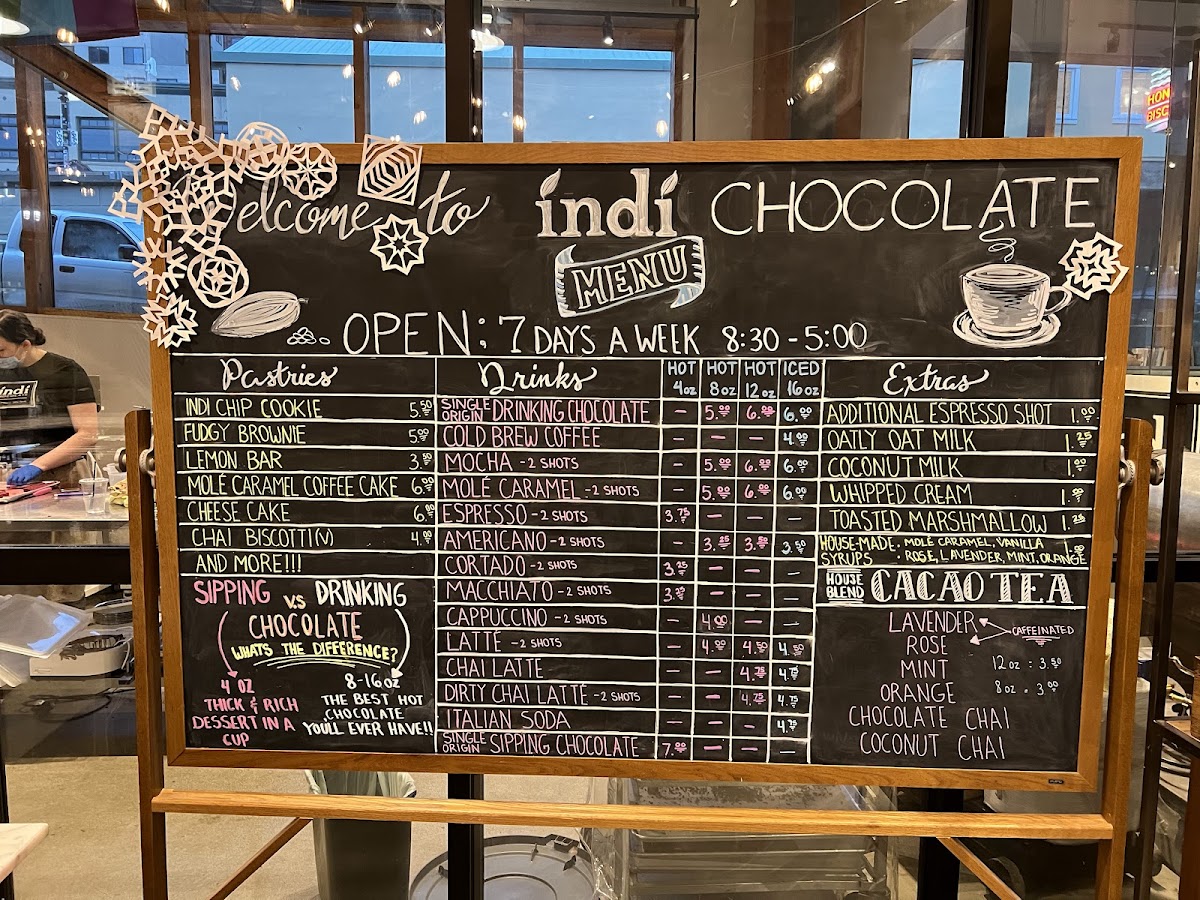 Welcome to indi CHOCOLATE
MENU
OPEN: 7 DAYS A WEEK 8:30 - 5:00
Pastries
INDI CHIP COOKIE 5.50
FUDGY BROWNIE 5.00
LEMON BAR 3.50
MOLÉ CARAMEL COFFEE CAKE 6.00
CHEESE CAKE 6.00
CHAI BISCOTTI (V) 4.00
AND MORE!!!
SIPPING VS DRINKING
CHOCOLATE
WHATS THE DIFFERENCE?
4 OZ
THICK & RICH
DESSERT IN A
CUP
8-16 OZ
THE BEST HOT
CHOCOLATE
YOU'LL EVER HAVE!!
Drinks HOT 4oz HOT 8oz HOT 12oz ICED 16oz
SINGLE ORIGIN DRINKING CHOCOLATE — 5.00 6.00 6.00
COLD BREW COFFEE — — — 4.00
MOCHA - 2 SHOTS — 5.00 6.00 6.00
MOLÉ CARAMEL - 2 SHOTS — 5.00 6.00 6.00
ESPRESSO - 2 SHOTS 3.75 — — —
AMERICANO - 2 SHOTS — 3.25 3.50 3.50
CORTADO - 2 SHOTS 3.25 — — —
MACCHIATO - 2 SHOTS 3.25 — — —
CAPPUCCINO - 2 SHOTS — 4.00 — —
LATTÉ - 2 SHOTS — 4.00 4.50 4.50
CHAI LATTE — — 4.75 4.75
DIRTY CHAI LATTÉ - 2 SHOTS — — 4.75 4.75
ITALIAN SODA — — — 4.75
SINGLE ORIGIN SIPPING CHOCOLATE 7.00 — — —
Extras
ADDITIONAL ESPRESSO SHOT 1.00
OATLY OAT MILK 1.25
COCONUT MILK 1.00
WHIPPED CREAM 1.00
TOASTED MARSHMALLOW 1.25
HOUSE-MADE SYRUPS • MOLÉ CARAMEL, VANILLA • ROSE, LAVENDER, MINT, ORANGE 1.00
HOUSE BLEND CACAO TEA
LAVENDER
ROSE
CAFFEINATED
MINT
ORANGE
CHOCOLATE CHAI
COCONUT CHAI
12 oz = 3.50
8 oz = 3.00
indi